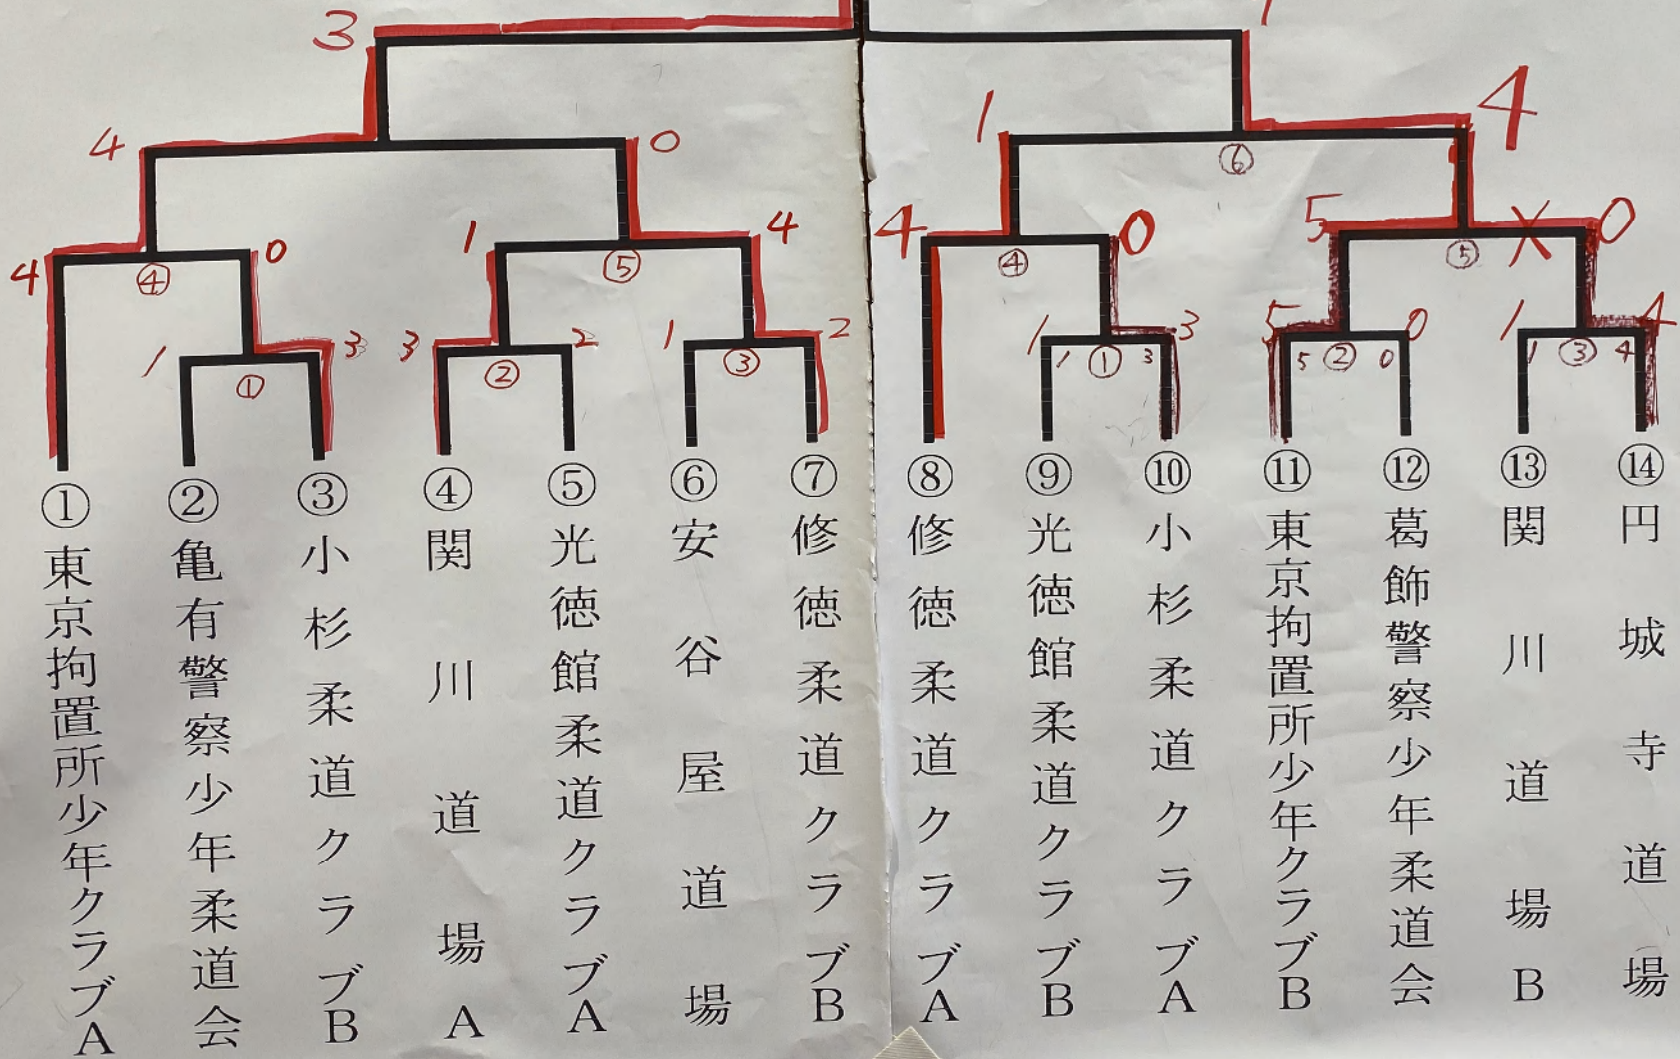 3
4
0
1
4
⑥
4
0
④
1
4
⑤
4
0
④
5
0
⑤
1
3
①
3
2
②
1
2
③
1
3
1
①
3
5
0
5
②
0
1
4
1
③
4
①東京拘置所少年クラブA
②亀有警察少年柔道会
③小杉柔道クラブB
④関川道場A
⑤光徳館柔道クラブA
⑥安谷屋道場
⑦修徳柔道クラブB
⑧修徳柔道クラブA
⑨光徳館柔道クラブB
⑩小杉柔道クラブA
⑪東京拘置所少年クラブB
⑫葛飾警察少年柔道会
⑬関川道場B
⑭円城寺道場